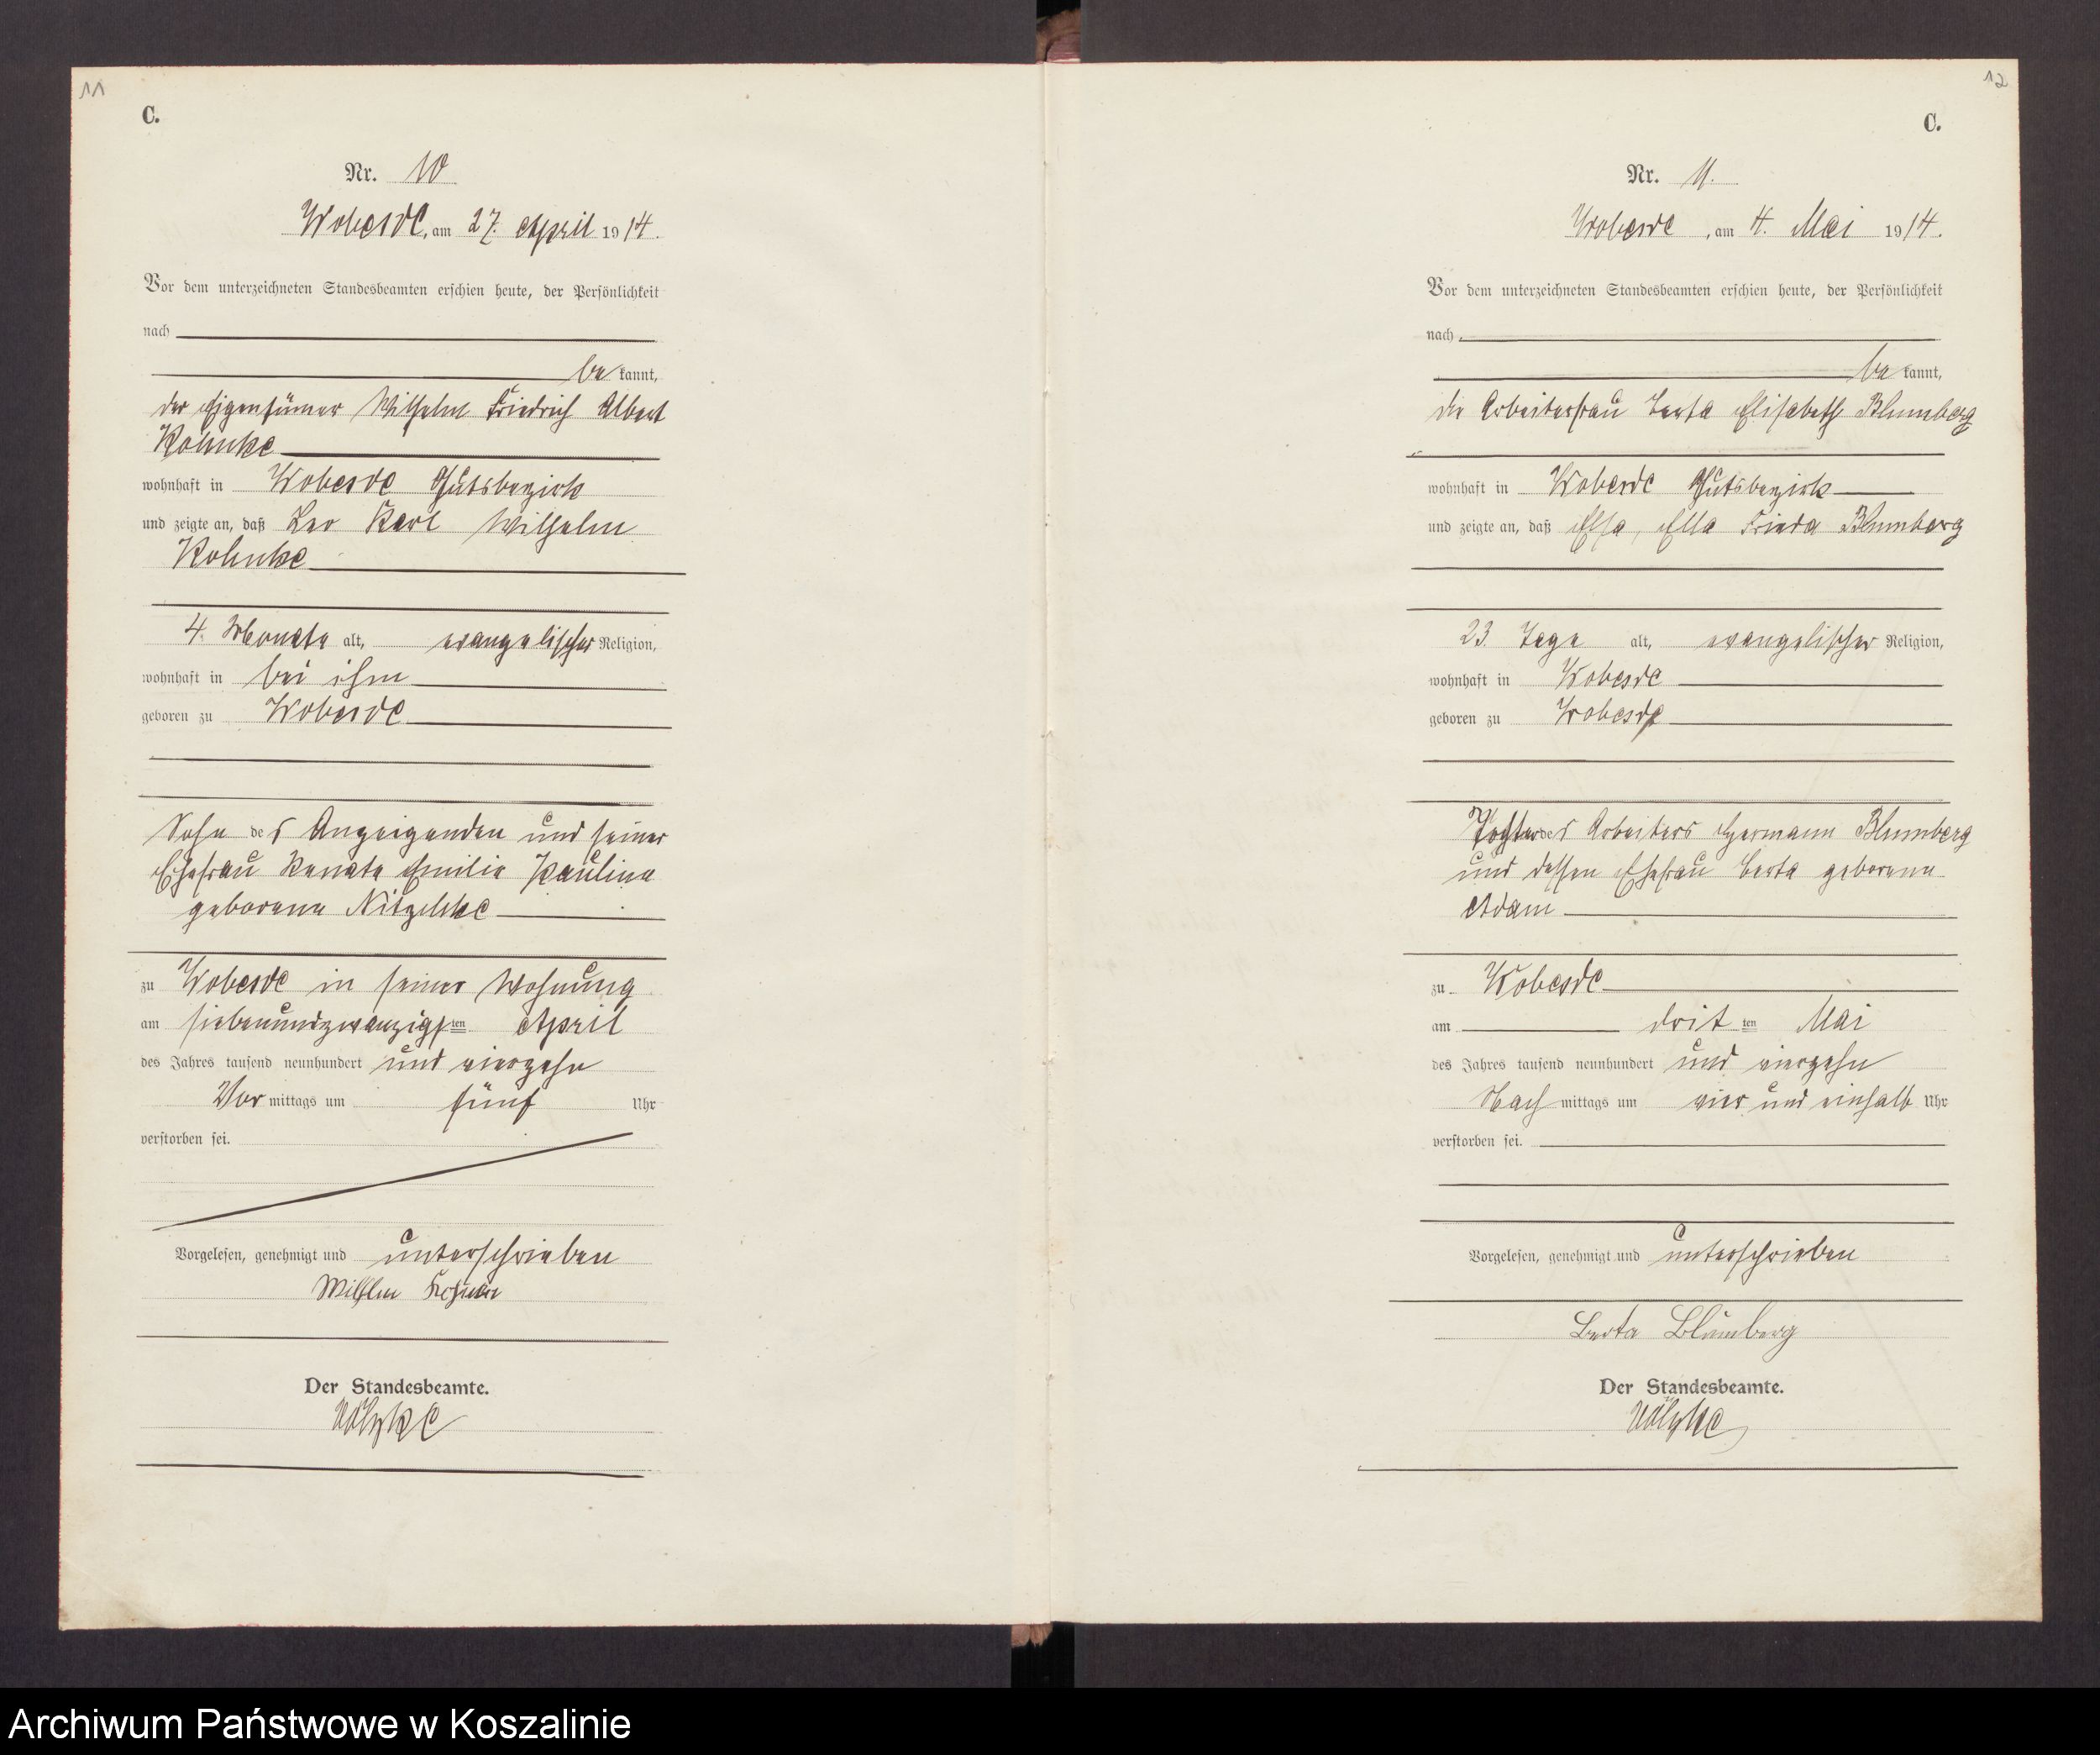 11
C.
Nr. 10
Wobesde, am 27. April 1914.
Vor dem unterzeichneten Standesbeamten erschien heute, der Persönlichkeit
nach
be kannt,
der Eigentümer Wilhelm Friedrich Albert
Kohnke
wohnhaft in Wobesde Gutsbezirk
und zeigte an, daß Leo Karl Wilhelm
Kohnke
4 Monate alt, evangelischer Religion,
wohnhaft in bei ihm
geboren zu Wobesde
Sohn des Anzeigenden und seiner
Ehefrau Renate Emilie Pauline
geborene Nitzschke
zu Wobesde in seiner Wohnung
am siebenundzwanzigsten April
des Jahres tausend neunhundert und vierzehn
Vor mittags um fünf Uhr
verstorben sei.
Vorgelesen, genehmigt und unterschrieben
Wilhelm Kohnke
Der Standesbeamte.
12
C.
Nr. 11.
Wobesde, am 4. Mai 1914.
Vor dem unterzeichneten Standesbeamten erschien heute, der Persönlichkeit
nach
be kannt,
die Arbeiterfrau Berta Elisabeth Blumberg
wohnhaft in Wobesde Gutsbezirk
und zeigte an, daß Elsa, Ella Frieda Blumberg
23 Tage alt, evangelischer Religion,
wohnhaft in Wobesde
geboren zu Wobesde
Tochter des Arbeiters Hermann Blumberg
und dessen Ehefrau Berta geborene
Adam
zu Wobesde
am dritten Mai
des Jahres tausend neunhundert und vierzehn
Nach mittags um vier und einhalb Uhr
verstorben sei.
Vorgelesen, genehmigt und unterschrieben
Berta Blumberg
Der Standesbeamte.
Archiwum Państwowe w Koszalinie